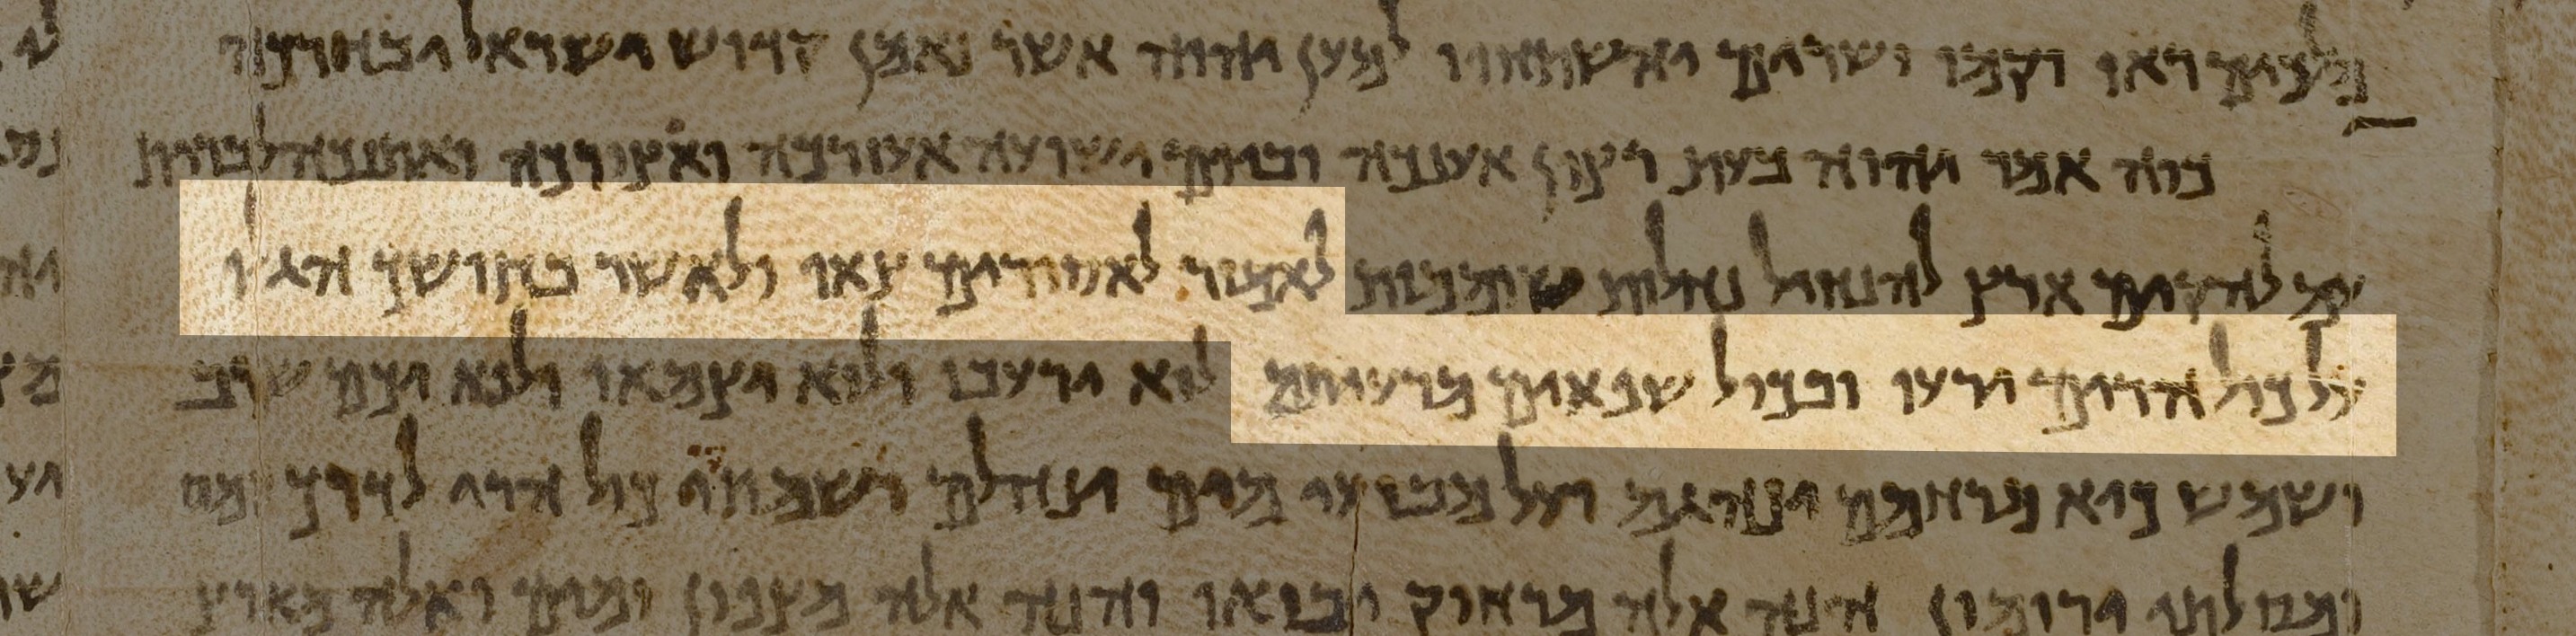 מלכים ראו וקמו ושרים והשתחוו למען יהוה אשר נאמן קדוש ישראל ויבחרכה
כוה אמר יהוה בעת רצון אענכה וביום ישועה אעזרכה ואצורכה ואתנכה לברית
עם להקים ארץ להנחיל נחלות שוממות לאמור לאסורים צאו ולאשר בחושך הגלו
על כול הרים ירעו ובכול שפאים מרעיתם לוא ירעבו ולוא יצמאו ולוא יכם שרב
ושמש כיא מרחמם ינהגם ועל מבועי מים ינהלם ושמתי כול הרי לדרך
ומסלותי ירומון הנה אלה מרחוק יבואו והנה אלה מצפון ומים ואלה מארץ